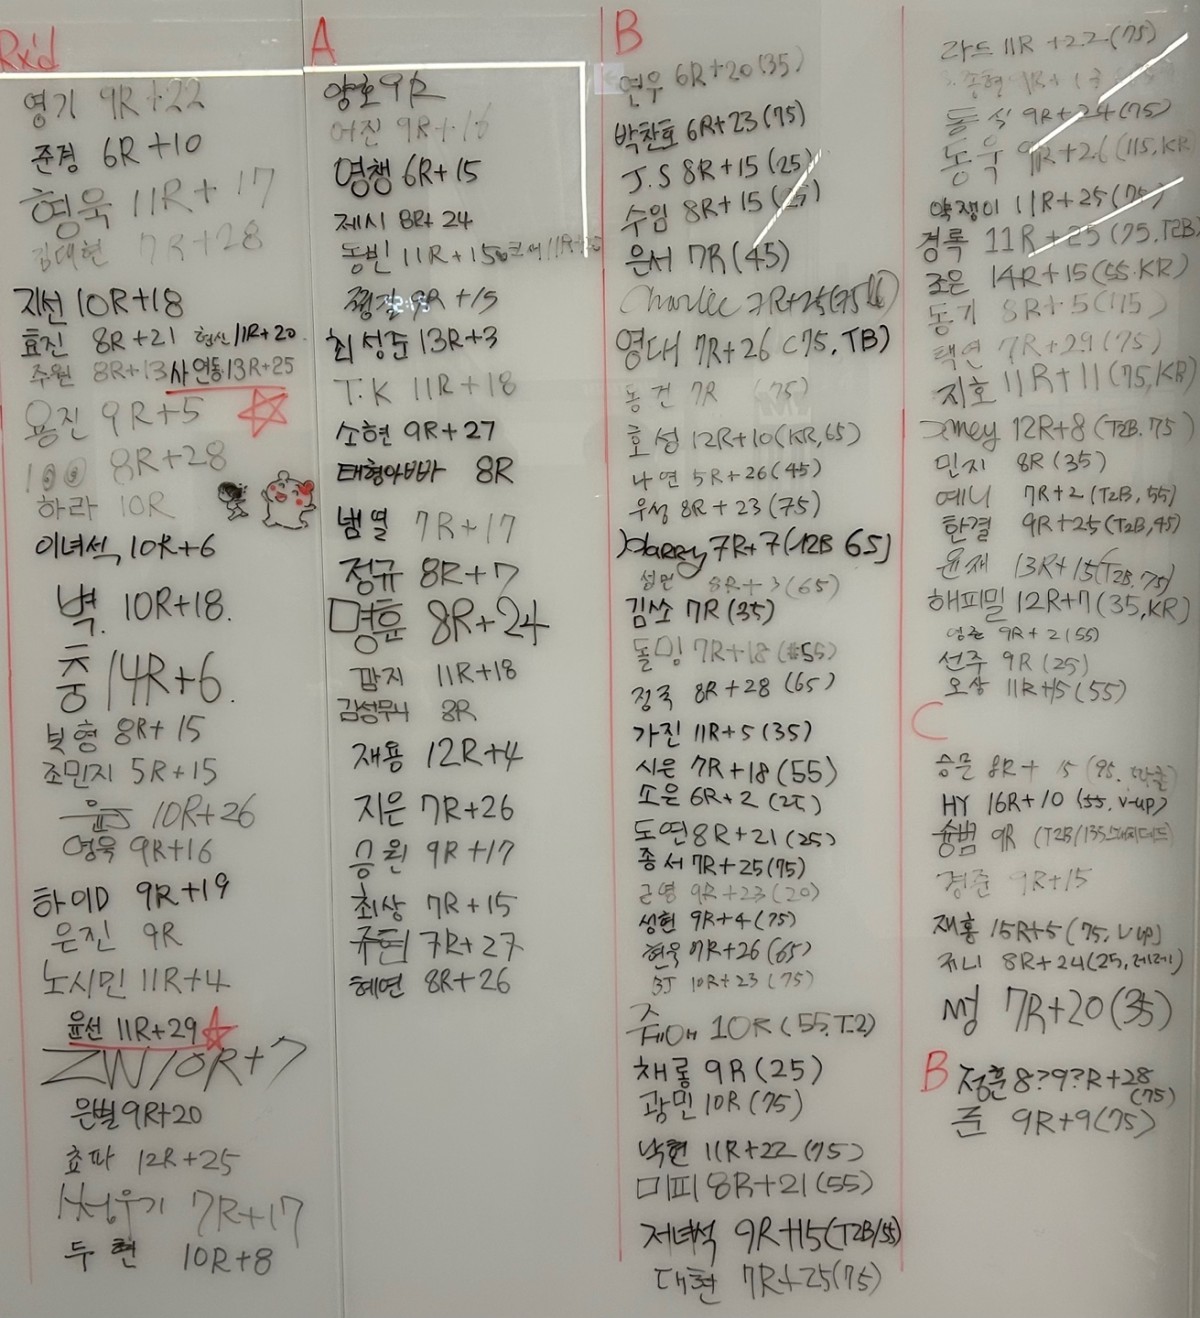 Rx'd
영기 9R+22
준경 6R+10
형욱 11R+17
김대현 7R+28
지선 10R+18
효진 8R+21 11R+20
주원 8R+13 사연동 13R+25
용진 9R+5
100 8R+28
하라 10R
이녀석 10R+6
벽. 10R+18.
충 14R+6.
북형 8R+15
조민지 5R+15
10R+26
영욱 9R+16
하이D 9R+19
은진 9R
노시민 11R+4
윤선 11R+29
ZW 10R+7
은별 9R+20
쵸파 12R+25
7R+17
두현 10R+8
A
양호 9R
어진 9R+16
영챙 6R+15
제시 8R+24
동빈 11R+15
9R+15
최성준 13R+3
T.K 11R+18
소현 9R+27
태형아빠 8R
범열 7R+17
정규 8R+7
명훈 8R+24
깜지 11R+18
김성무니 8R
재용 12R+4
지은 7R+26
승원 9R+17
최상 7R+15
규현 7R+27
혜연 8R+26
B
연우 6R+20(35)
박찬호 6R+23(75)
J.S 8R+15(25)
수임 8R+15(25)
은서 7R(45)
Charlie 7R+25(75)
영대 7R+26(75,TB)
동건 7R (75)
호성 12R+10(KR,65)
나연 5R+26(45)
우성 8R+23(75)
Harry 7R+7(12B 65)
성민 8R+3(65)
김쏘 7R(35)
돌밍 7R+18(#55)
정국 8R+28(65)
가진 11R+5(35)
시은 7R+18(55)
소은 6R+2(25)
도연 8R+21(25)
종서 7R+25(75)
근영 9R+23(20)
성현 9R+4(75)
현욱 7R+26(65)
BJ 10R+23(75)
쥬애 10R(55,T.2)
채롱 9R(25)
광민 10R(75)
낙현 11R+22(75)
미피 8R+21(55)
저녀석 9R+15(T2B/55)
대현 7R+25(75)
라드 11R+22(75)
종혁 9R+13
동식 9R+24(75)
동욱 9R+26(115,KR)
약쟁이 11R+25(75)
경록 11R+25(75,T2B)
조은 14R+15(55.KR)
동기 8R+5(115)
택연 7R+29(75)
지호 11R+11(75,KR)
12R+8(T2B.75)
민지 8R(35)
예니 7R+2(T2B,55)
한결 9R+25(T2B,45)
윤재 13R+15(T2B.75)
해피밀 12R+7(35,KR)
영준 9R+2(55)
선주 9R(25)
오상 11R+15(55)
C
승문 8R+15(95.
HY 16R+10(55,V-up)
슝범 9R (T2B/135
경준 9R+15
재홍 15R+5(75,V up)
쥐니 8R+24(25,레레)
썽 7R+20(35)
B 정훈 8?9?R+28
(75)
준 9R+9(75)